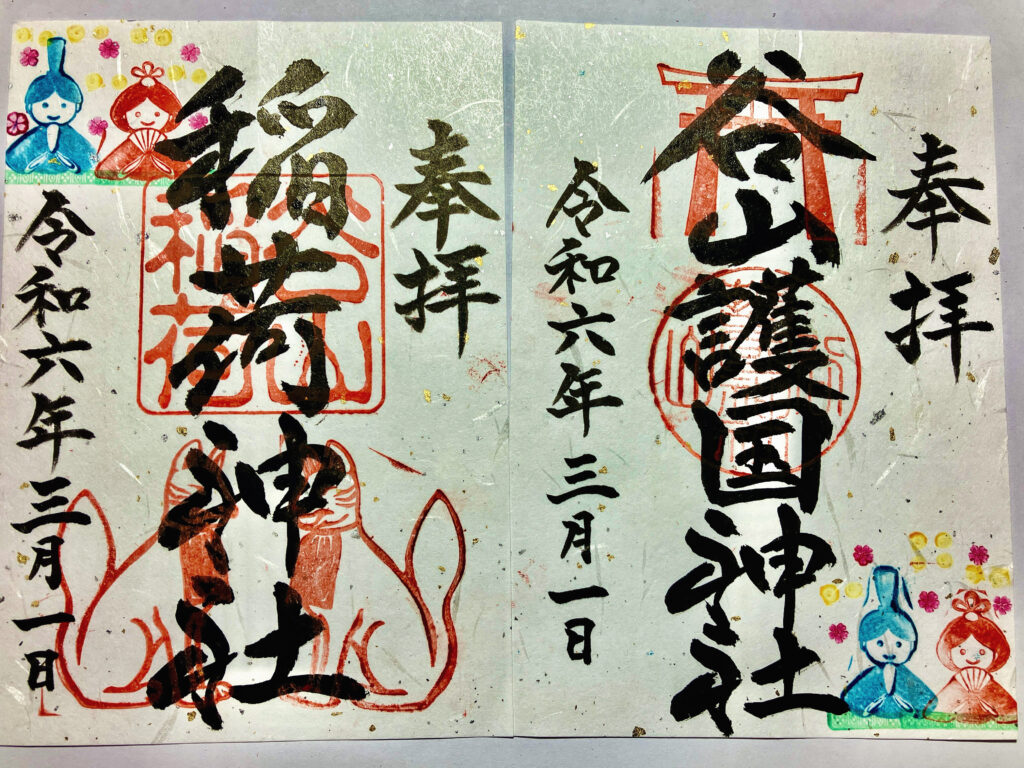 奉拝
谷山護国神社
令和六年三月一日
奉拝
稲荷神社
令和六年三月一日